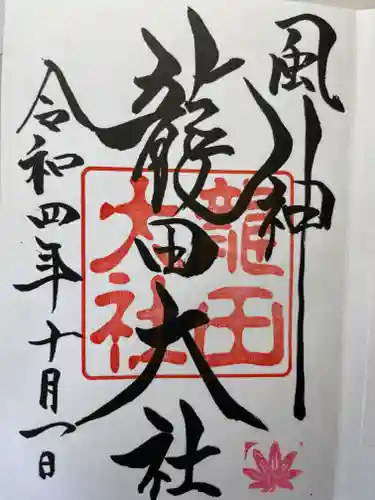 風神
龍田大社
令和四年十月一日
龍田
大社